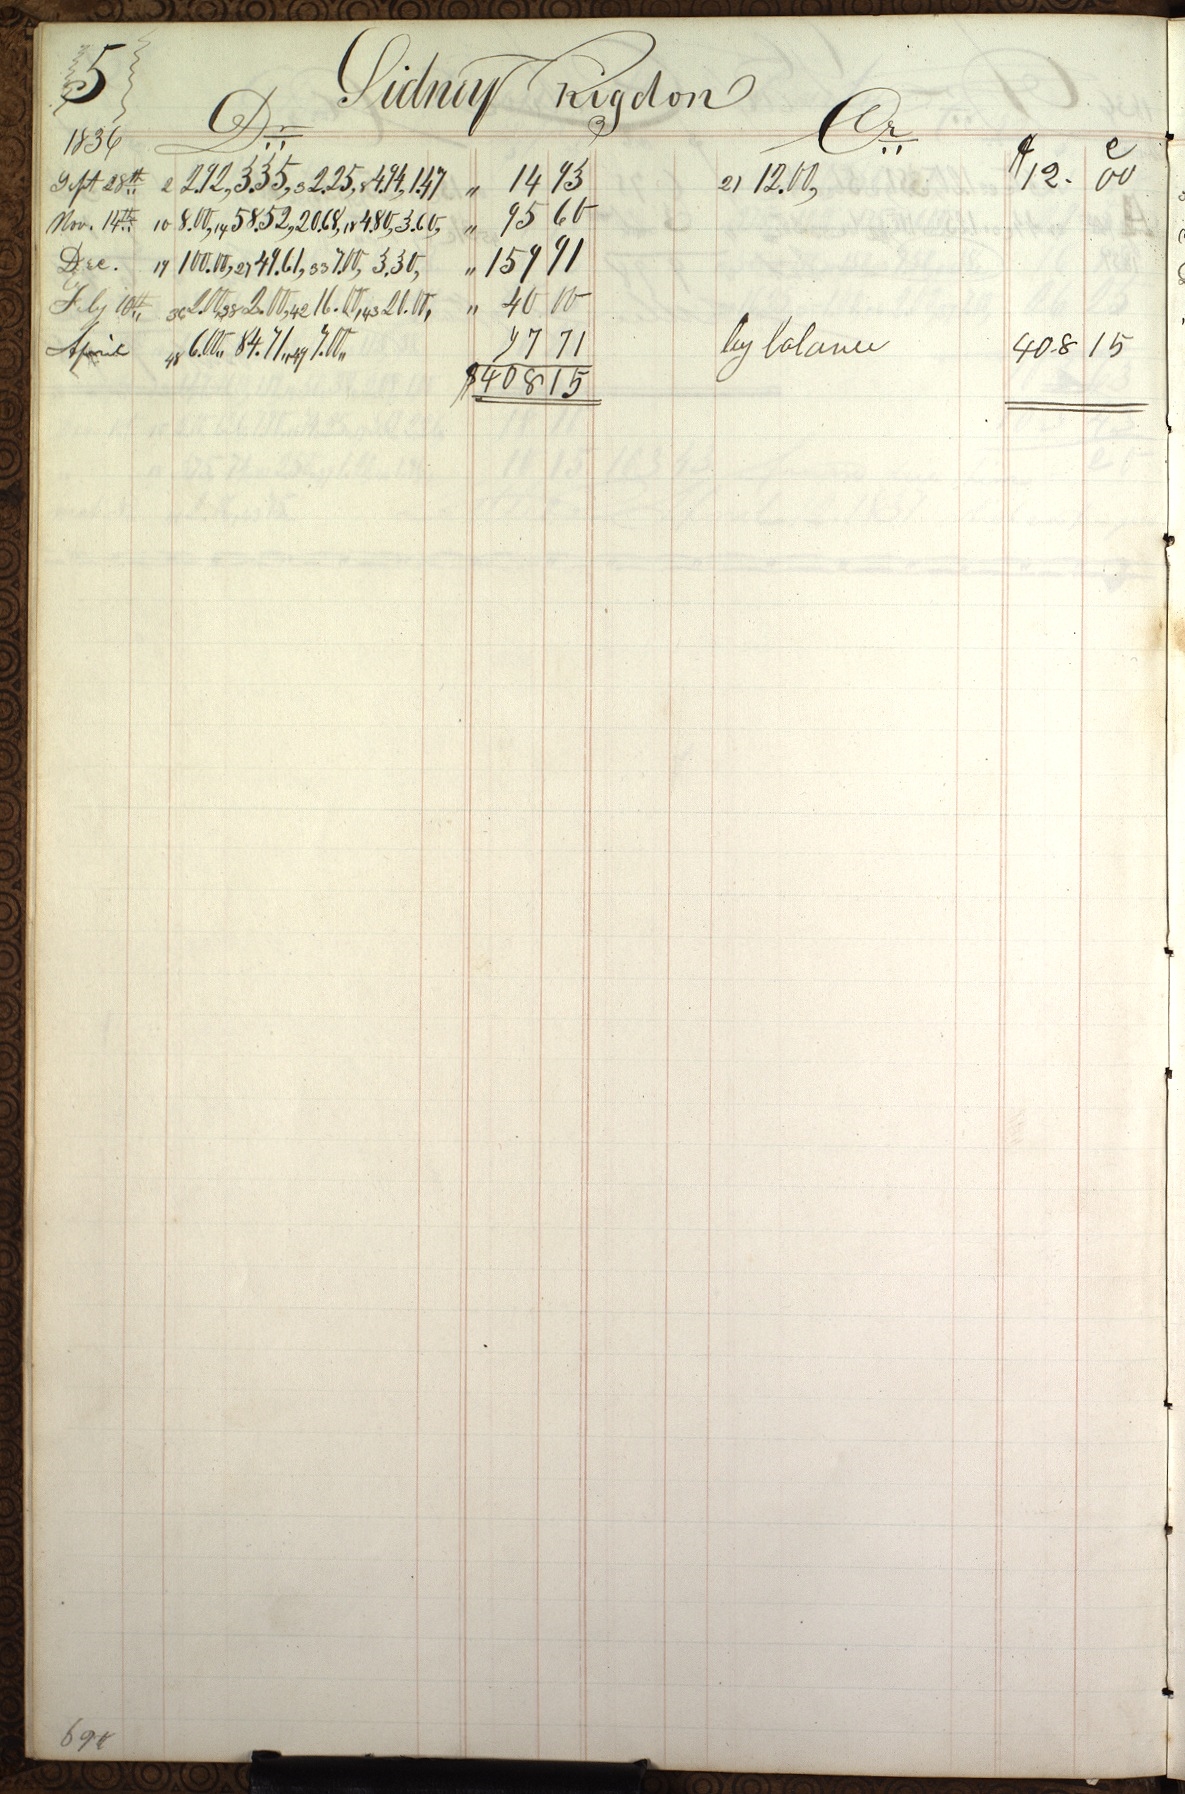 5 Sidney Rigdon
1836 Dr Cr
Sept. 28th 2 2.92, 3.35, 3 2.25, 8 4.94, 1.47 " 14 93 21 12.00, $12. 00 c
Nov. 14th 10 8.00, 14 58.52, 20.68, 18 4.80, 3.60, " 95 60
Dec. 19 100.00, 27 49.61, 33 7.00, 3.30, " 159 91
Feby 10th 36 2.00, 38 2.00, 42 16.00, 43 20.00, " 40 00
April 48 6.00,, 84.71,, 49 7.00,, 97 71 by balance 408 15
$408 15